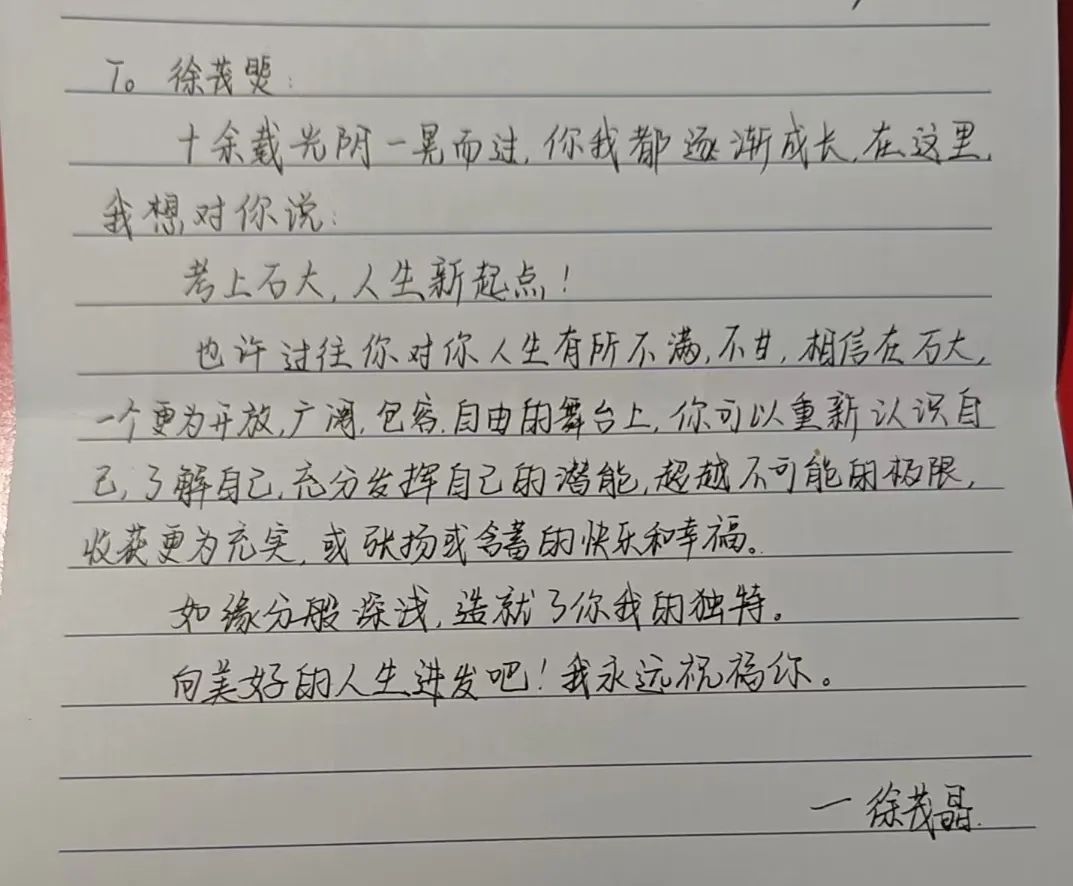 To 徐茂煚:
十余载光阴一晃而过,你我都逐渐成长,在这里,
我想对你说:
考上石大,人生新起点!
也许过往你对你人生有所不满,不甘,相信在石大,
一个更为开放,广阔,包容,自由的舞台上,你可以重新认识自
己,了解自己,充分发挥自己的潜能,超越不可能的极限,
收获更为充实,或张扬或含蓄的快乐和幸福。
如缘分般深浅,造就了你我的独特。
向美好的人生进发吧!我永远祝福你。
—徐茂晶.